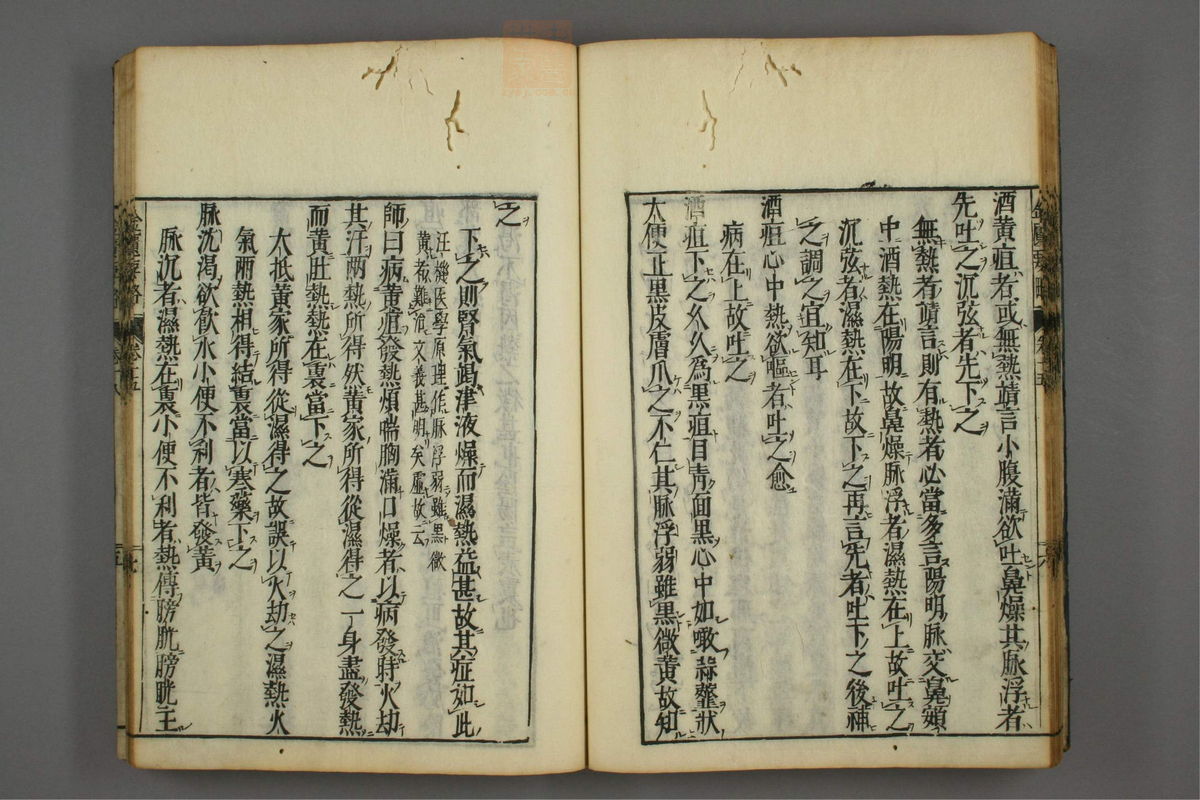 酒黄疸者或無熱靖言小腹滿欲吐鼻燥其脉浮者
先吐之沉弦者先下之
無熱者靖言則有熱者必當多言陽明脉交鼻頞
中酒熱在陽明故鼻燥脉浮者濕熱在上故吐之
沉弦者濕熱在下故下之再言先者吐下之後神
之調之宜知耳
酒疸心中熱欲嘔者吐之愈
病在上故吐之
酒疸下之久久爲黒疸目青面黒心中如噉蒜虀狀
大便正黒皮膚爪之不仁其脉浮弱雖黒微黄故知
之
下之則腎氣竭津液燥而濕熱益甚故其症如此
汪機医學原理作脉浮弱雖黒微
黄者難治文義甚明矣虛故云
師曰病黄疸發熱煩喘胸滿口燥者以病發時火劫
其汗兩熱所得然黄家所得從濕得之一身盡發熱
而黄肚熱熱在裏當下之
大抵黄家所得從濕得之故誤以火劫之濕熱火
氣兩熱相得結裏當以寒藥下之
脉沉渴欲飲水小便不利者皆發黄
脉沉者濕熱在裏小便不利者熱傳膀胱膀胱主